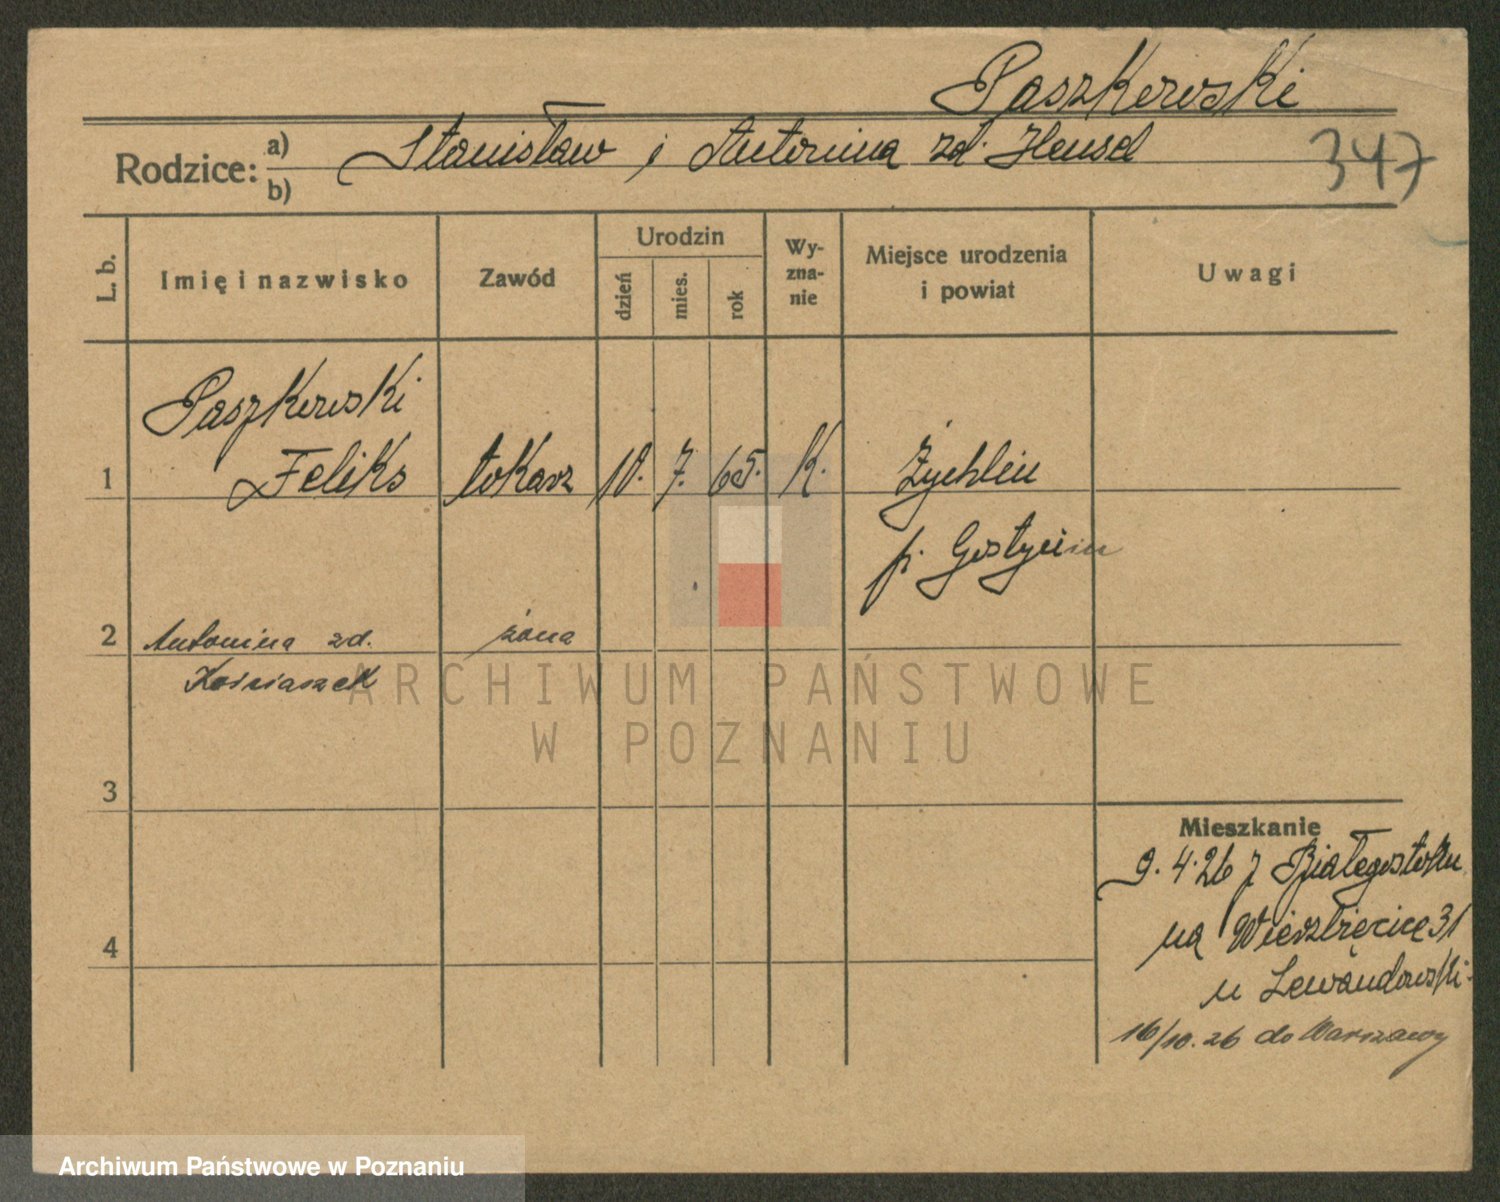 Paszkowski
Rodzice: a) Stanisław i Antonina zd. Hensel
b)
347
L. b.
Imię i nazwisko
Zawód
Urodzin
dzień
mies.
rok
Wy-
zna-
nie
Miejsce urodzenia
i powiat
Uwagi
Paszkowski
1 Feliks tokarz 18. 7. 65. K. Żychlin
p. Gostynin
2 Antonina zd. żona
Kościaszek
ARCHIWUM PAŃSTWOWE
W POZNANIU
3
Mieszkanie
9.4.26 z Białegostoku
na Wierzbięcice 31
4
u Lewandowski.
16/10.26 do Warszawy
Archiwum Państwowe w Poznaniu